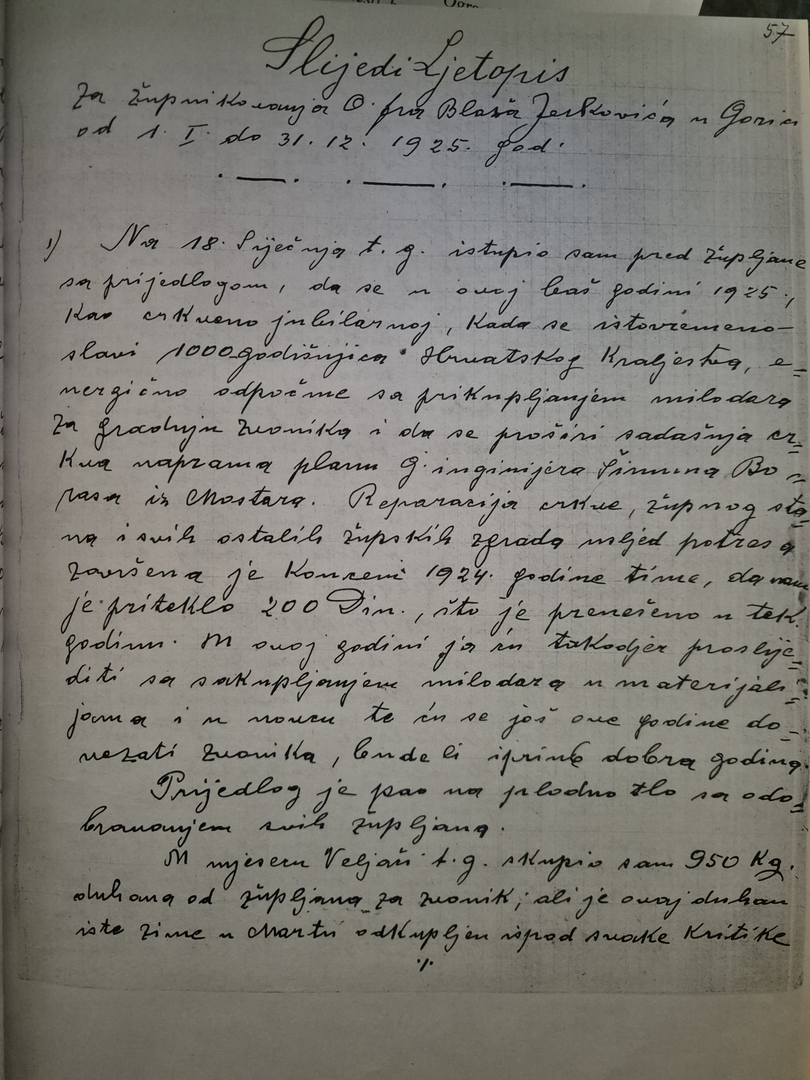 57
Slijedi Ljetopis
Za župnikovanja O. fra Blaža Jerkovića u Gorici
od 1. I. do 31. 12. 1925. god.
1) Na 18. Siječnja t. g. istupio sam pred župljane
sa prijedlogom, da se u ovoj baš godini 1925.,
kao crkveno jubilarnoj, kada se istovremeno
slavi 1000godišnjica Hrvatskog Kraljestva, e=
nergično odpočme sa prikupljanjem milodara
za gradnju zvonika i da se proširi sadašnja cr=
kva naprama planu G. inginijera Šimuna Bo=
rasa iz Mostara. Reparacija crkve, župnog sta=
na i svih ostalih župskih zgrada usljed potresa
završena je koncem 1924. godine time, da nam
je priteklo 200 Din., što je prenešeno u tek.
godinu. U ovoj godini ja ću takodjer proslije=
diti sa sakupljanjem milodara u materijali=
jama i u novcu te ću se još ove godine do=
vezati zvonika, bude li iprink dobra godina.
Prijedlog je pao na plodno tlo sa odo=
bravanjem svih župljana.
U mjesecu Veljači t. g. skupio sam 950 Kg.
duhana od župljana za zvonik; ali je ovaj duhan
iste zime u Martu odkupljen ispod svake kritike
./.